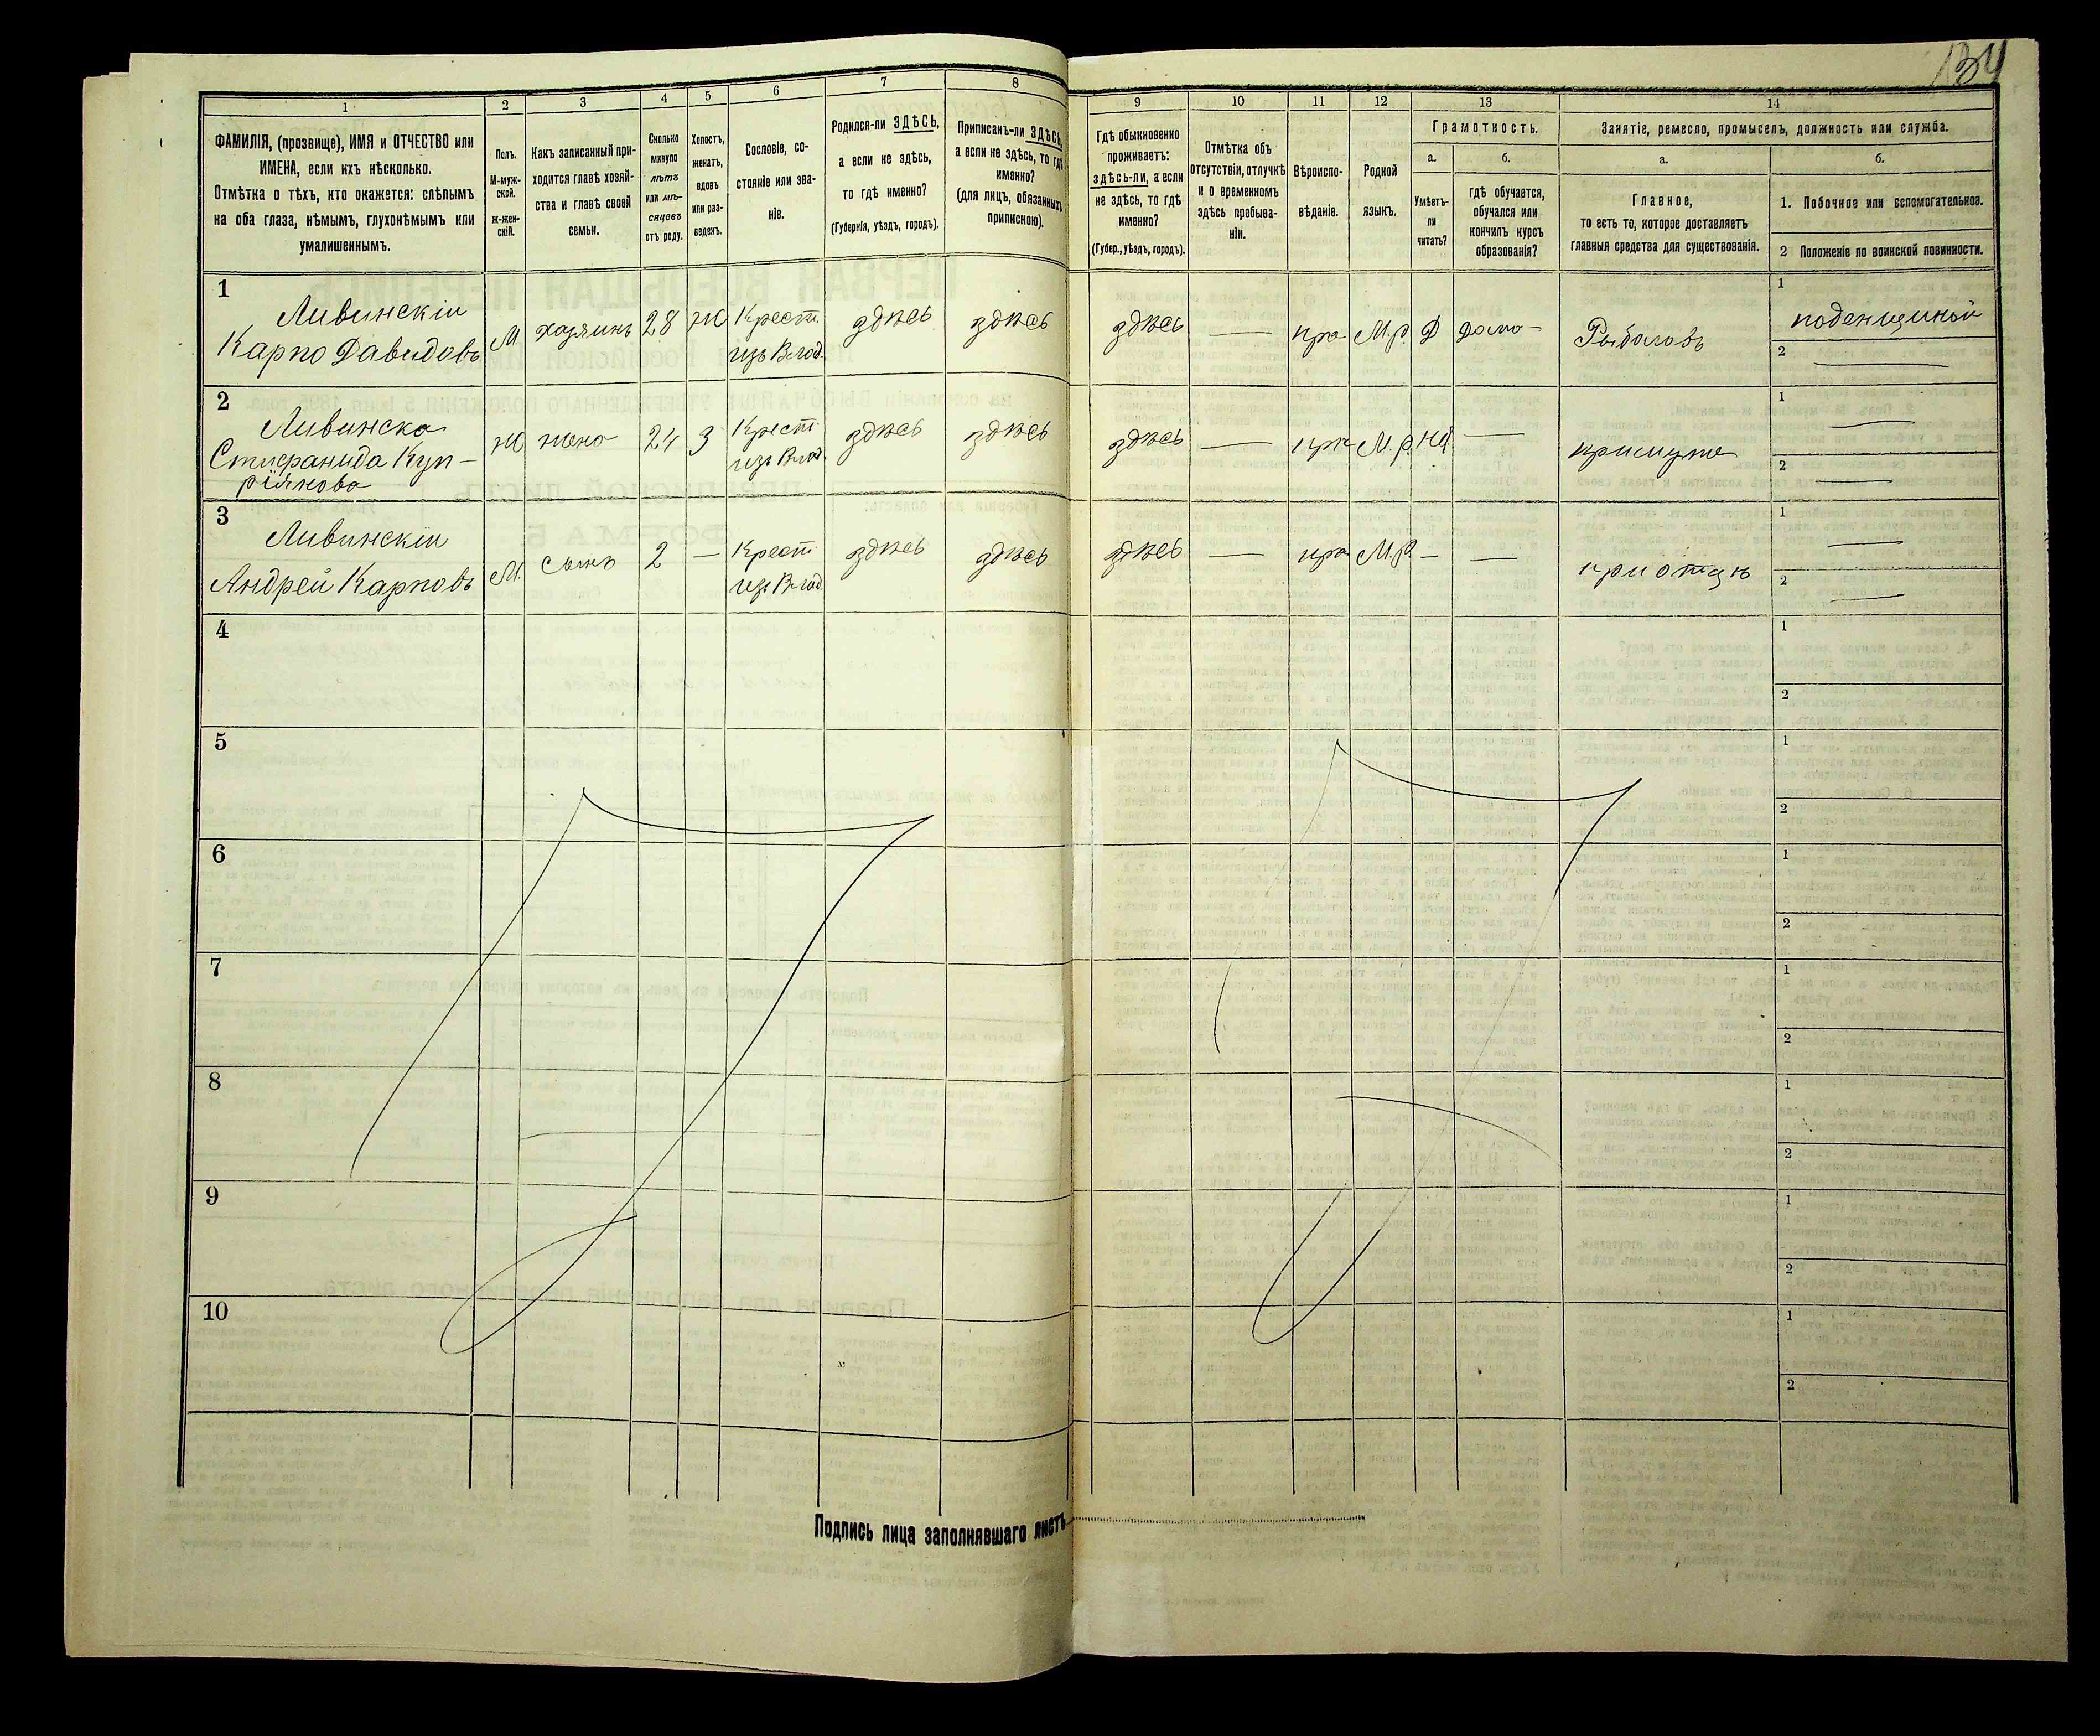 134
1
2
3
4
5
6
7
8
9
10
11
12
13
14
ФАМИЛІЯ, (прозвище), ИМЯ и ОТЧЕСТВО или
ИМЕНА, если ихъ нѣсколько.
Отмѣтка о тѣхъ, кто окажется: слѣпымъ
на оба глаза, нѣмымъ, глухонѣмымъ или
умалишеннымъ.
Полъ.
М-муж-
ской.
Ж-жен-
скій.
Какъ записанный при-
ходится главѣ хозяй-
ства и главѣ своей
семьи.
Сколько
минуло
лѣтъ
или мѣ-
сяцевъ
отъ роду.
Холостъ,
женатъ,
вдовъ
или раз-
веденъ.
Сословіе, со-
стояніе или зва-
ніе.
Родился-ли ЗДѢСЬ,
а если не здѣсь,
то гдѣ именно?
(Губернія, уѣздъ, городъ).
Приписанъ-ли ЗДѢСЬ,
а если не здѣсь, то гдѣ
именно?
(для лицъ, обязанныхъ
припискою).
Гдѣ обыкновенно
проживаетъ:
здѣсь-ли, а если
не здѣсь, то гдѣ
именно?
(Губер., уѣздъ, городъ).
Отмѣтка объ
отсутствіи, отлучкѣ
и о временномъ
здѣсь пребыва-
ніи.
Вѣроиспо-
вѣданіе.
Родной
языкъ.
Грамотность.
а.
Умѣетъ-
ли
читать?
б.
гдѣ обучается,
обучался или
кончилъ курсъ
образованія?
Занятіе, ремесло, промыселъ, должность или служба.
а.
Главное,
то есть то, которое доставляетъ
главныя средства для существованія.
б.
1. Побочное или вспомогательное.
2 Положеніе по воинской повинности.
1
Ливинскіи
Карпо Давидовъ
М хозяинъ 28 Ж Крест. изъ Влад. здѣсь здѣсь здѣсь — пра М.р. Д дома- Рыболовъ
1 поденщиной
2 —
2
Ливинска
Стефанида Куп-
ріянова
Ж жена 24 З Крест изъ Влад здѣсь здѣсь здѣсь — пра М.р. Нѣ — примуже
1 —
2 —
3
Ливинскіи
Андрей Карповъ
М. сынъ 2 — Крест изъ Влад. здѣсь здѣсь здѣсь — пра М.р. — — приотцѣ
1 —
2 —
4
1
2
5
1
2
6
1
2
7
1
2
8
1
2
9
1
2
10
1
2
Подпись лица заполнявшаго листъ